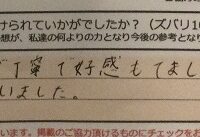 けられていかがでしたか？（ズバリ10
想が、私達の何よりの力となり今後の参考とな
丁寧で好感もてまし
いました。
います。掲載のご協力頂けるものにチェックをお